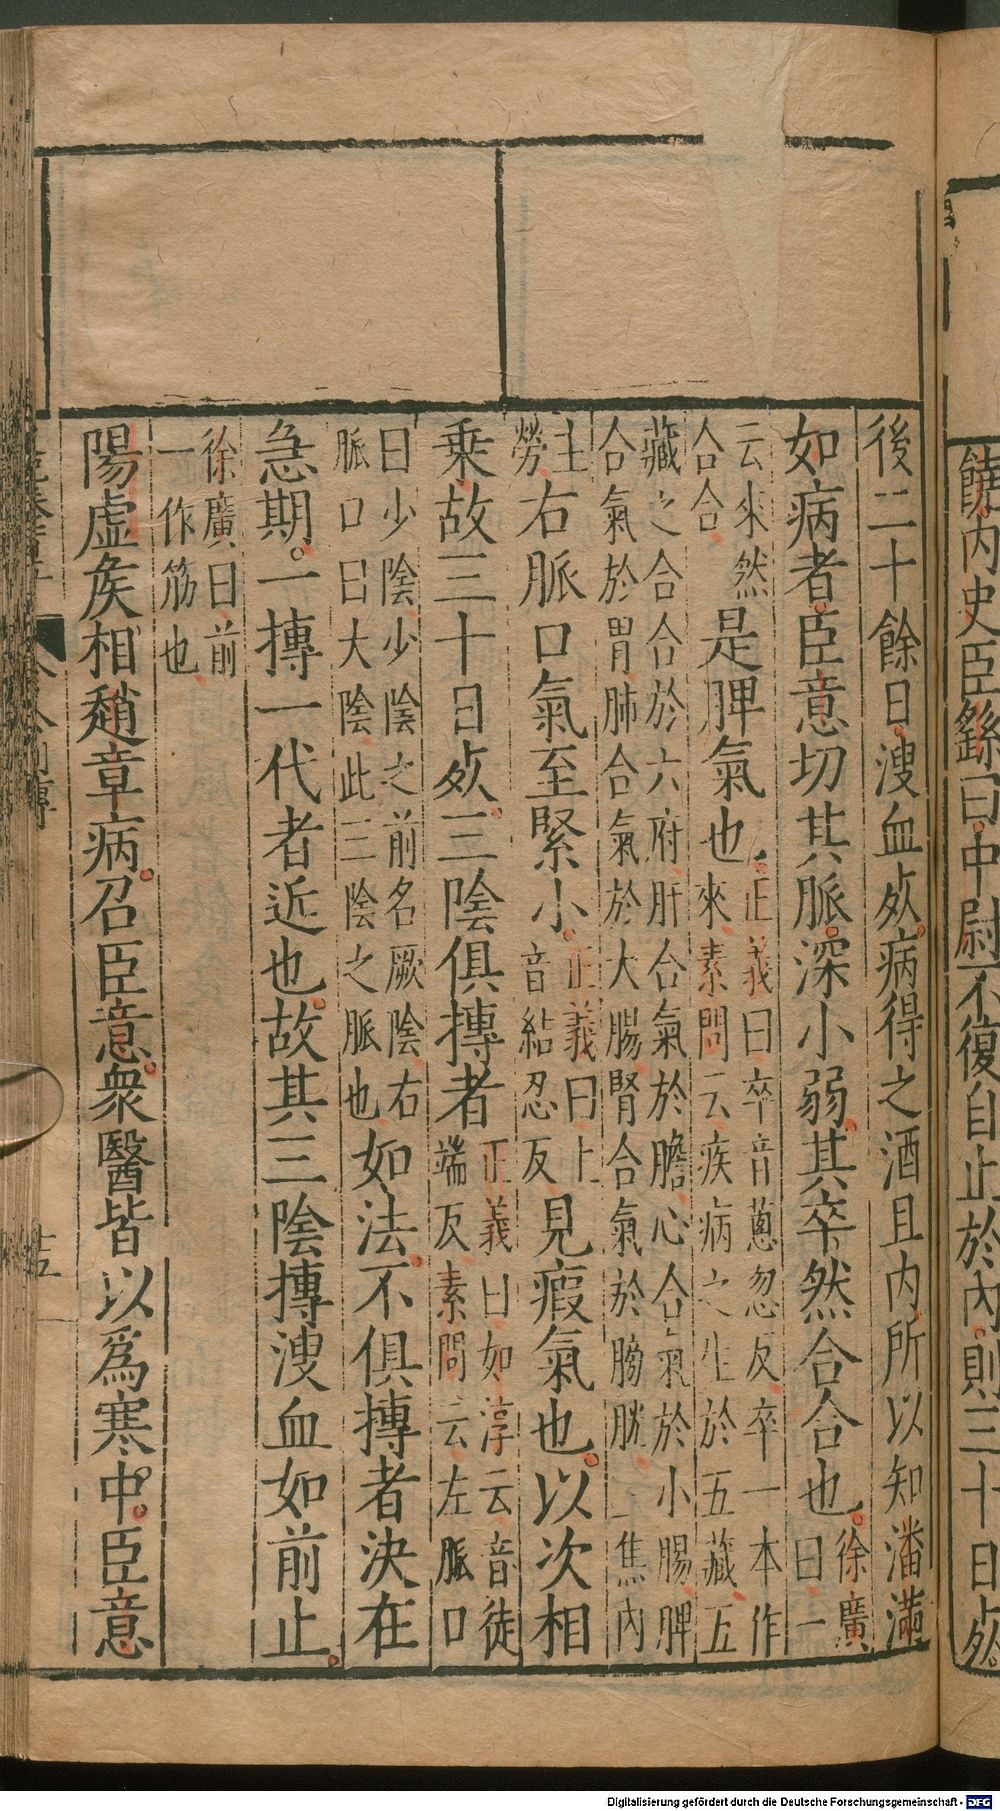 饒內史臣繇曰中尉不復自止於內則三十日死
後二十餘日溲血死病得之酒且內所以知潘滿
如病者臣意切其脈深小弱其卒然合合也徐廣
曰一
云來然
合合
是脾氣也
正義曰卒音蔥忽反卒一本作
來素問云疾病之生於五藏五
藏之合合於六府肝合氣於膽心合氣於小腸脾
合氣於胃肺合氣於大腸腎合氣於膀胱三焦內
主
勞
右脈口氣至緊小
正義曰上
音結忍反
見瘕氣也以次相
乘故三十日死三陰俱摶者
正義曰如淳云音徒
端反素問云左脈口
曰少陰少陰之前名厥陰右
脈口曰大陰此三陰之脈也
如法不俱摶者決在
急期一摶一代者近也故其三陰摶溲血如前止
徐廣曰前
一作筋也
陽虛矦相趙章病召臣意衆醫皆以爲寒中臣意
十五
Digitalisierung gefördert durch die Deutsche Forschungsgemeinschaft - DFG